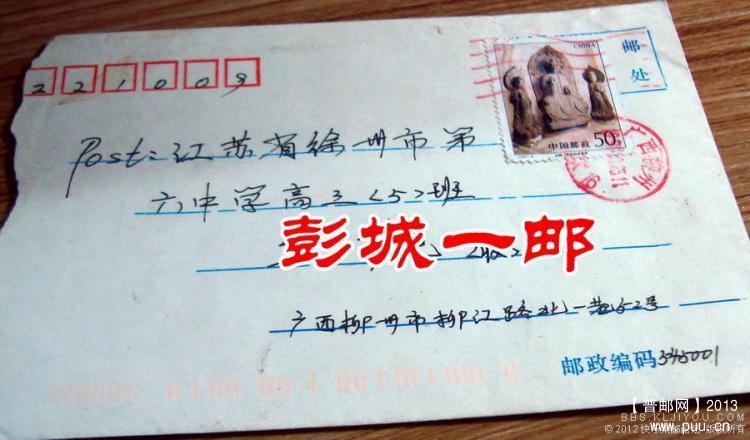 221009
邮
处
CHINA
中国邮政 50分
Post: 江苏省徐州市第
六中学高三(5)班
彭城一邮
<收>
广西柳州市柳江路北一巷52号
邮政编码 545001
【普邮网】2013
BBS.KLJIYOU.COM
www.puu.cn